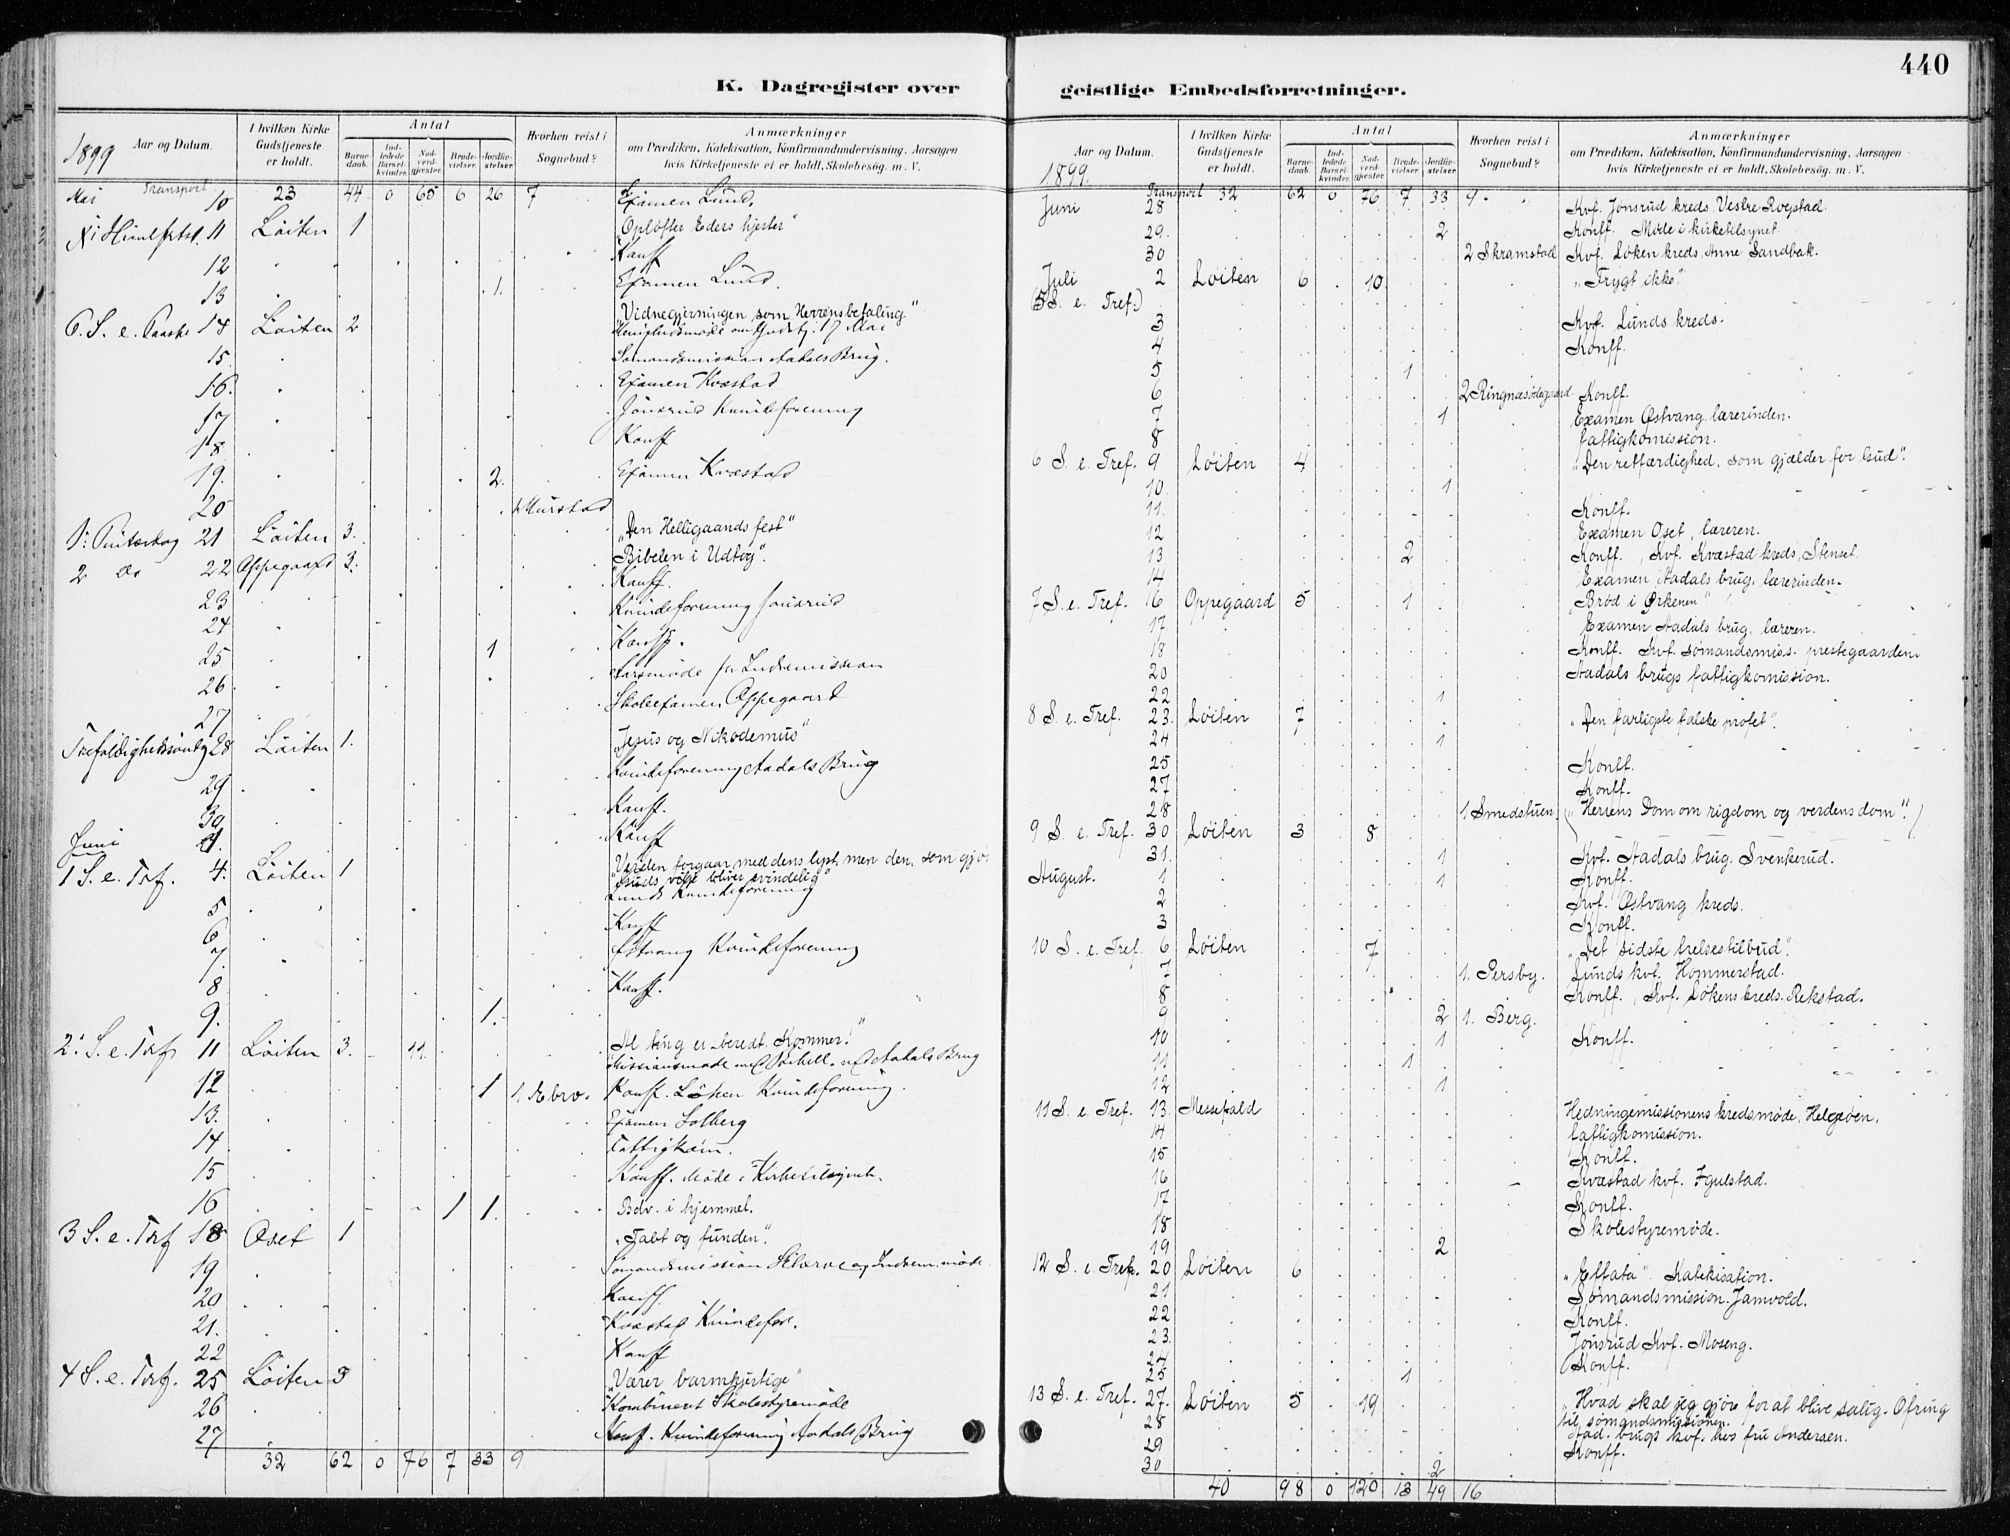 440
K. Dagregister over
geistlige Embedsforretninger.
Aar og Datum.
I hvilken Kirke Gudstjeneste er holdt.
Antal
Barnedaab.
Indledede Barselkvinder.
Nadverdgjester
Brudevielser.
Jordfæstelser.
Hvorhen reist i Sognebud?
Anmærkninger
om Prædiken, Katekisation, Konfirmandundervisning, Aarsagen
hvis Kirketjeneste ei er holdt, Skolebesög. m. V.
1899
Mai Transport 10 23 44 0 65 6 26 7 Examen Lund.
Himlfartsd. 11 Löiten 1 "Opløfter Eders hjerter"
12 Konff
13 1. Examen Lund.
6. S. e. Paaske 14 Löiten 2 "Vidnegjerningen som Herrens befaling"
17 Mai
15. Sømandsmission Aadals Brug.
16. Examen Kvæstad
17 Jönsrud Kvindeforening
18 Konff
19. 2. Examen Kvæstad
20
1. Pintsedag 21 Löiten 3. "Den Helligaands fest"
2 do 22 Oppegaard 3. "Bibelen i Udtog".
Konff.
23 Kvindeforening Jönsrud
24 Konff.
25 1 Aarsmøde for Indremission
26 Skoleexamen Oppegaard
27
Trefoldighedssöndag 28 Löiten 1. "Jesus og Nikodemus"
Kvindeforening Aadals Brug
29
30 Konff.
Juni 1. Konff
1 S. e. Tref. 4. Löiten 1 "Verden forgaar med dens lyst, men den, som gjør
Guds vilje bliver evindelig"
5 Lunds Kvindeforening
6 Konff
7. Østvang Kvindeforening
8 Konff.
9. 1.
2. S. e. Tref 11 Löiten 3. 11. "Al ting er beredt. Kommer!"
12 1 1 Ebro. Konff. Löken Kvindeforening
13. Examen Solberg
14 Fattigkom.
15 Konff. Møde i Kirketilsynet.
16 1 1. Bdv. i hjemmet.
3 S. e. Tref 18 Oset 1 "Tabt og funden".
19
20 Konff.
21. Kvæstad Kvindefor.
22 Konff
4 S. e. Tref. 25 Löiten 3 "Værer barmhjertige"
26 Kombineret Skolestyremøde
27 Konf. Kvindeforening Aadals Brug
32 62 0 76 7 33 9
Aar og Datum.
I hvilken Kirke Gudstjeneste er holdt.
Antal
Barnedaab.
Indledede Barselkvinder.
Nadverdgjester
Brudevielser
Jordfæstelser
Hvorhen reist i Sognebud?
Anmærkninger
om Prædiken, Katekisation, Konfirmandundervisning, Aarsagen
hvis Kirketjeneste ei er holdt, Skolebesög. m. V.
1899.
Transport 32 62 0 76 7 33 9
Juni 28 Kvf. Jønsrud kreds Vestre Rogstad.
29. 2 Konff. Møde i kirketilsynet.
30 2 Skramstad Kvf. Løken kreds, Anne Sandbak.
Juli 2 Løiten 6 10 "Frygt ikke".
(5 S. e. Tref.)
3 Kvf. Lunds kreds.
4 Konff.
5 1
6 2 Ringnæsødegaard Konff.
7 1 Examen Østvang lærerinden.
8 Fattigkomission.
6 S. e. Tref. 9 Løiten 4 "Den retfærdighed, som gjælder for Gud".
10 1
11. Konff.
12 Examen Oset, læreren.
13 2 Konff., Kvf. Kvæstad kreds, Stenset.
14 Examen, Aadals brug, lærerinden.
7 S. e. Tref. 16 Oppegaard 5 1 "Brød i Ørkenen"
17 Examen Aadals brug, læreren.
18 Konff. Kvf. sømandsmiss. prestegaarden.
20 Aadals brugs fattigkomission.
22 1
8 S. e. Tref. 23 Løiten 7 "Den farligste falske profet".
24 1
25 Konff.
27 Konff.
28 1 Smedstuen
9 S. e. Tref. 30 Løiten 3 8 ("Herrens Dom om rigdom og verdens dom".)
31. 1 Kvf. Aadals brug. Svenkerud.
August. 1 1 Konff.
2 Kvf. Østvang kreds.
3 Konff.
10 S. e. Tref. 6 Løiten 7 "Det sidste frelsestilbud".
7 1. Persby. Lunds kvf. Hommerstad.
8 Konff., Kvf. Løkens kreds. Rekstad.
9 2 1. Berg.
10 1 Konff.
11 1
12 1
11 S. e. Tref. 13. Messefald Hedningemissionens kredsmøde, Helgøen.
14 Fattigkomission.
15 Konff.
16 Kvæstad kvf. Igulstad.
17 Konff.
18 Skolestyremøde.
19 2
12 S. e. Tref. 20 Løiten 6 "Effata". Katekisation.
21 Sømandsmission. Jamvold.
22 Konff.
23. Jønsrud Kvf. Moseng.
24 Konff.
25 1
13 S. e. Tref. 27. Løiten 5 19 "Hvad skal jeg gjøre for at blive salig. Ofring
til sømandsmissionen.
28 Aad. brugs kvf. hos fru Andersen.
29 Konff.
30 2
40 98 0 120 13 49 16